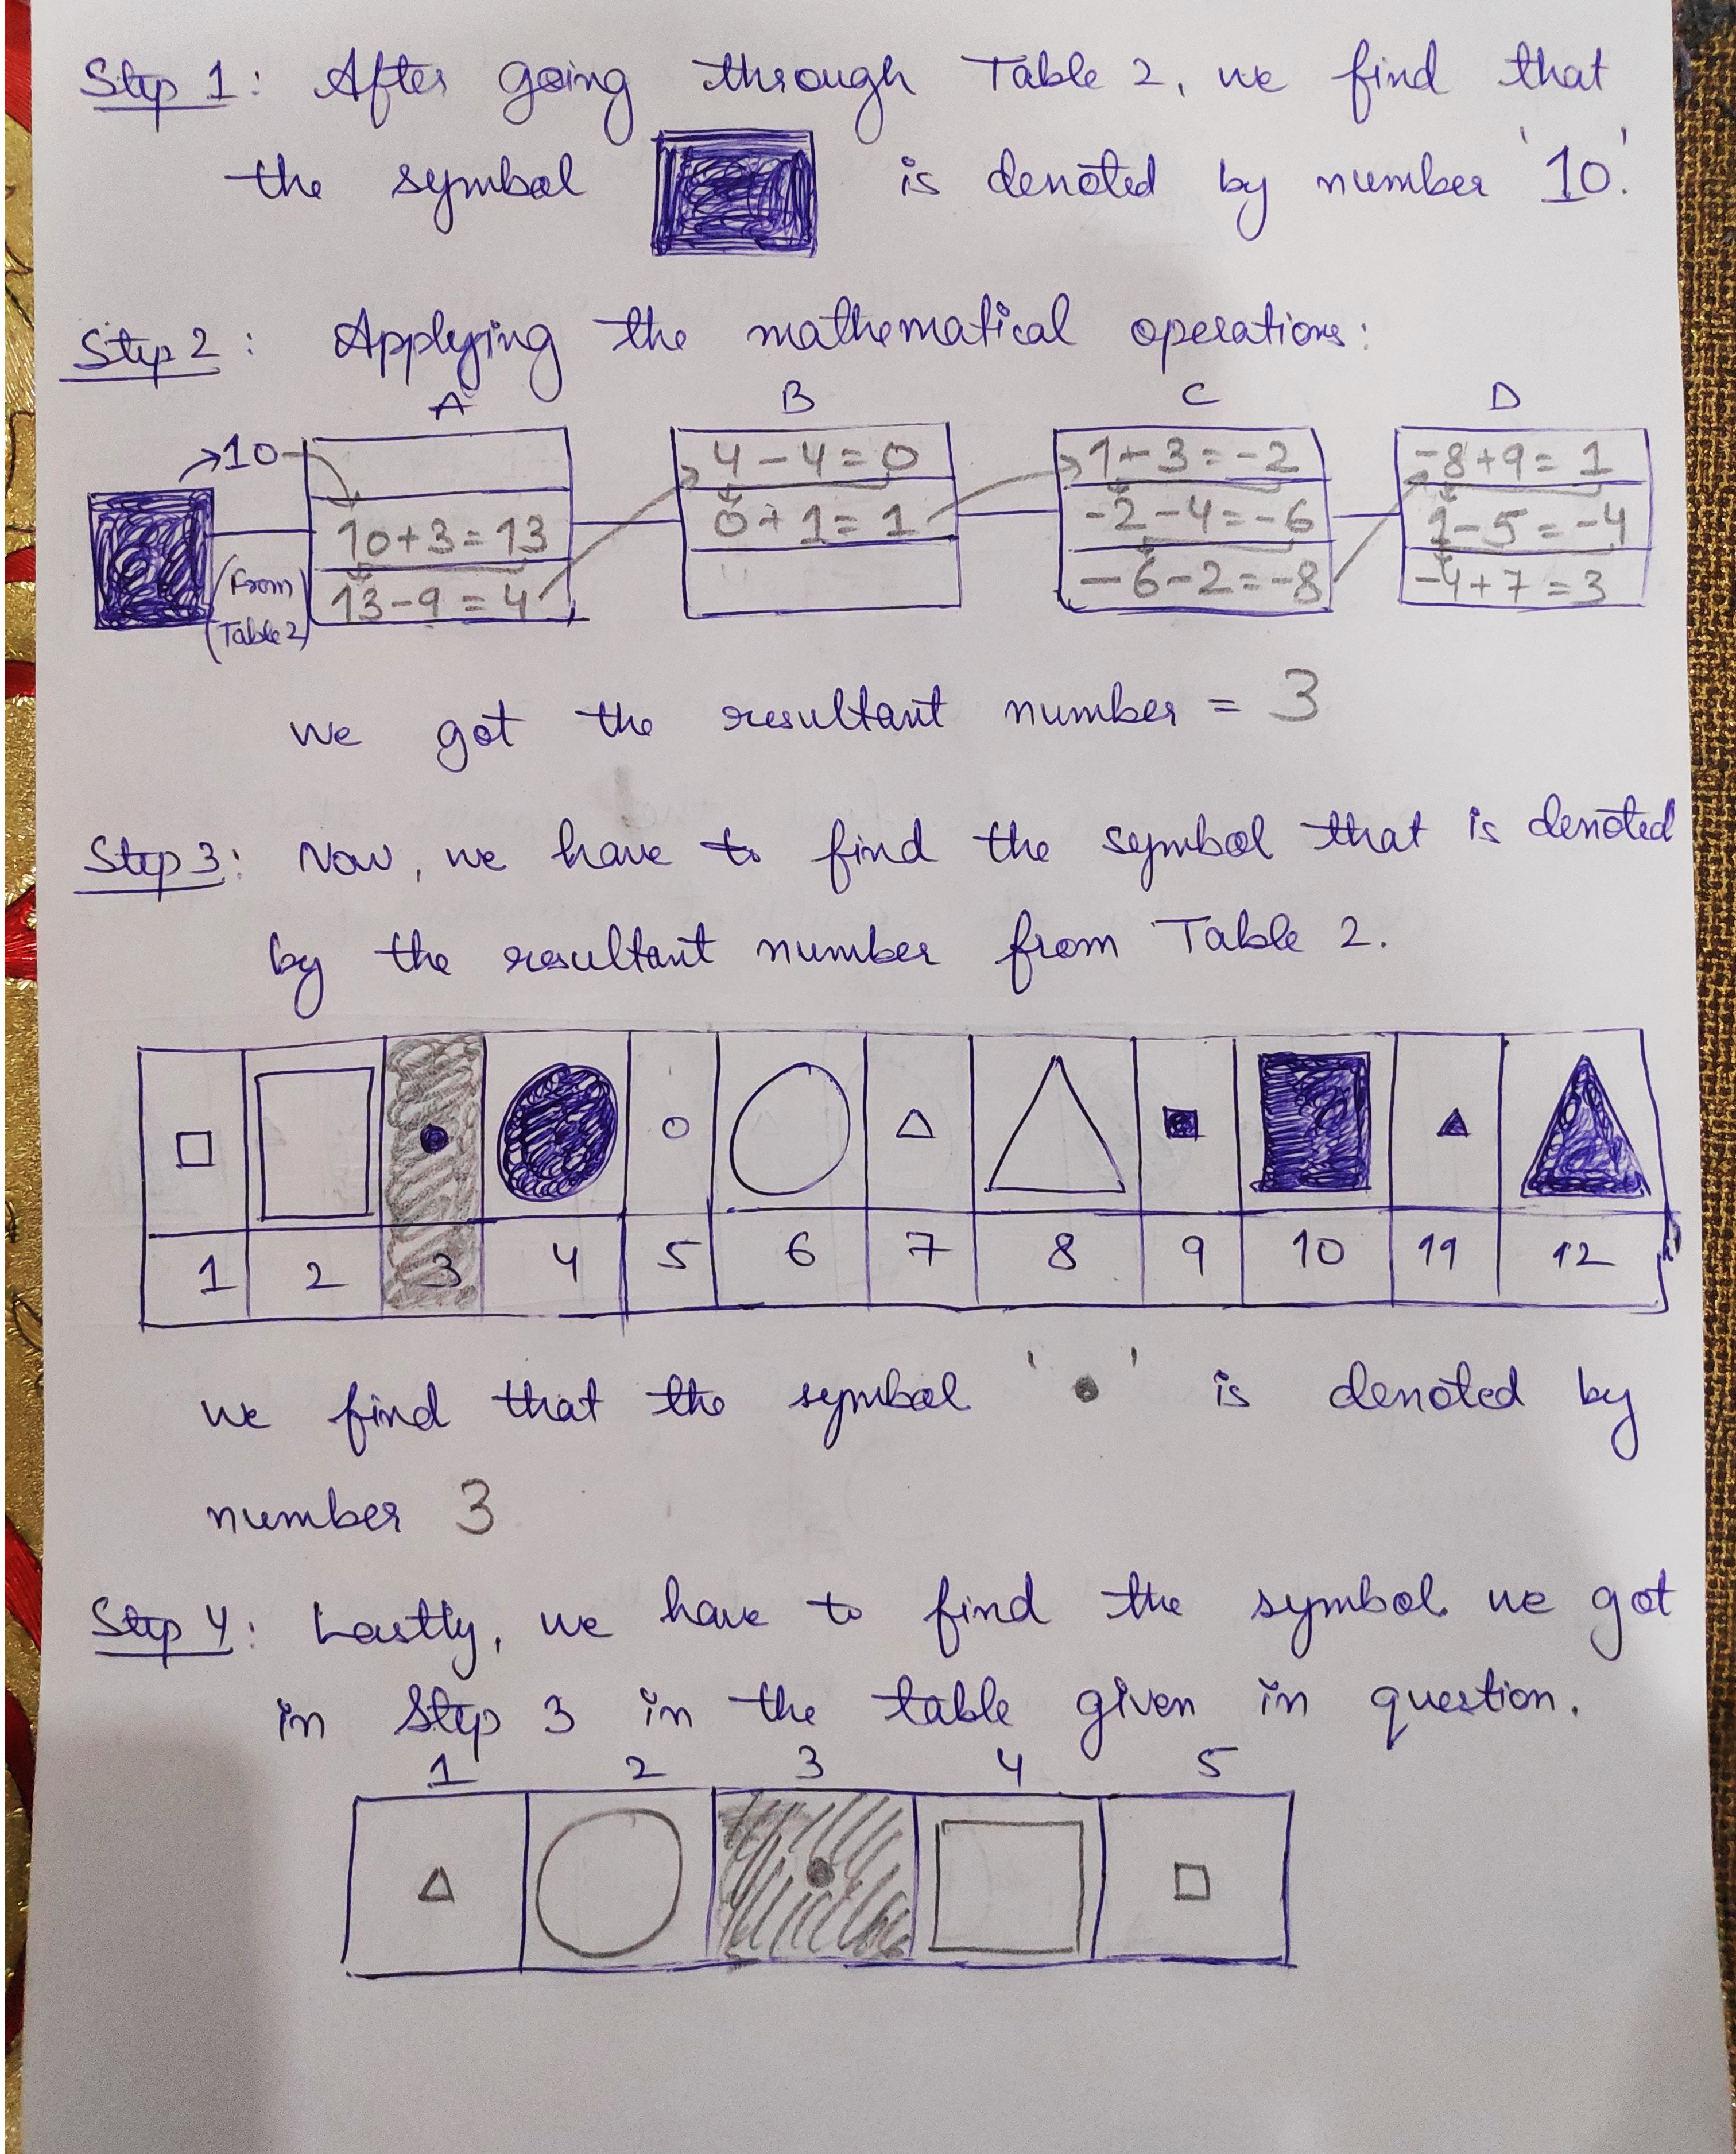 Step 1: After going through Table 2, we find that
the symbol is denoted by number '10'.
Step 2: Applying the mathematical operations:
A B C D
10
4 - 4 = 0
1 - 3 = -2
-8 + 9 = 1
10 + 3 = 13
0 + 1 = 1
-2 - 4 = -6
1 - 5 = -4
(From Table 2)
13 - 9 = 4
-6 - 2 = -8
-4 + 7 = 3
we got the resultant number = 3
Step 3: Now, we have to find the symbol that is denoted
by the resultant number from Table 2.
1 2 3 4 5 6 7 8 9 10 11 12
we find that the symbol '●' is denoted by
number 3
Step 4: Lastly, we have to find the symbol we got
in Step 3 in the table given in question.
1 2 3 4 5